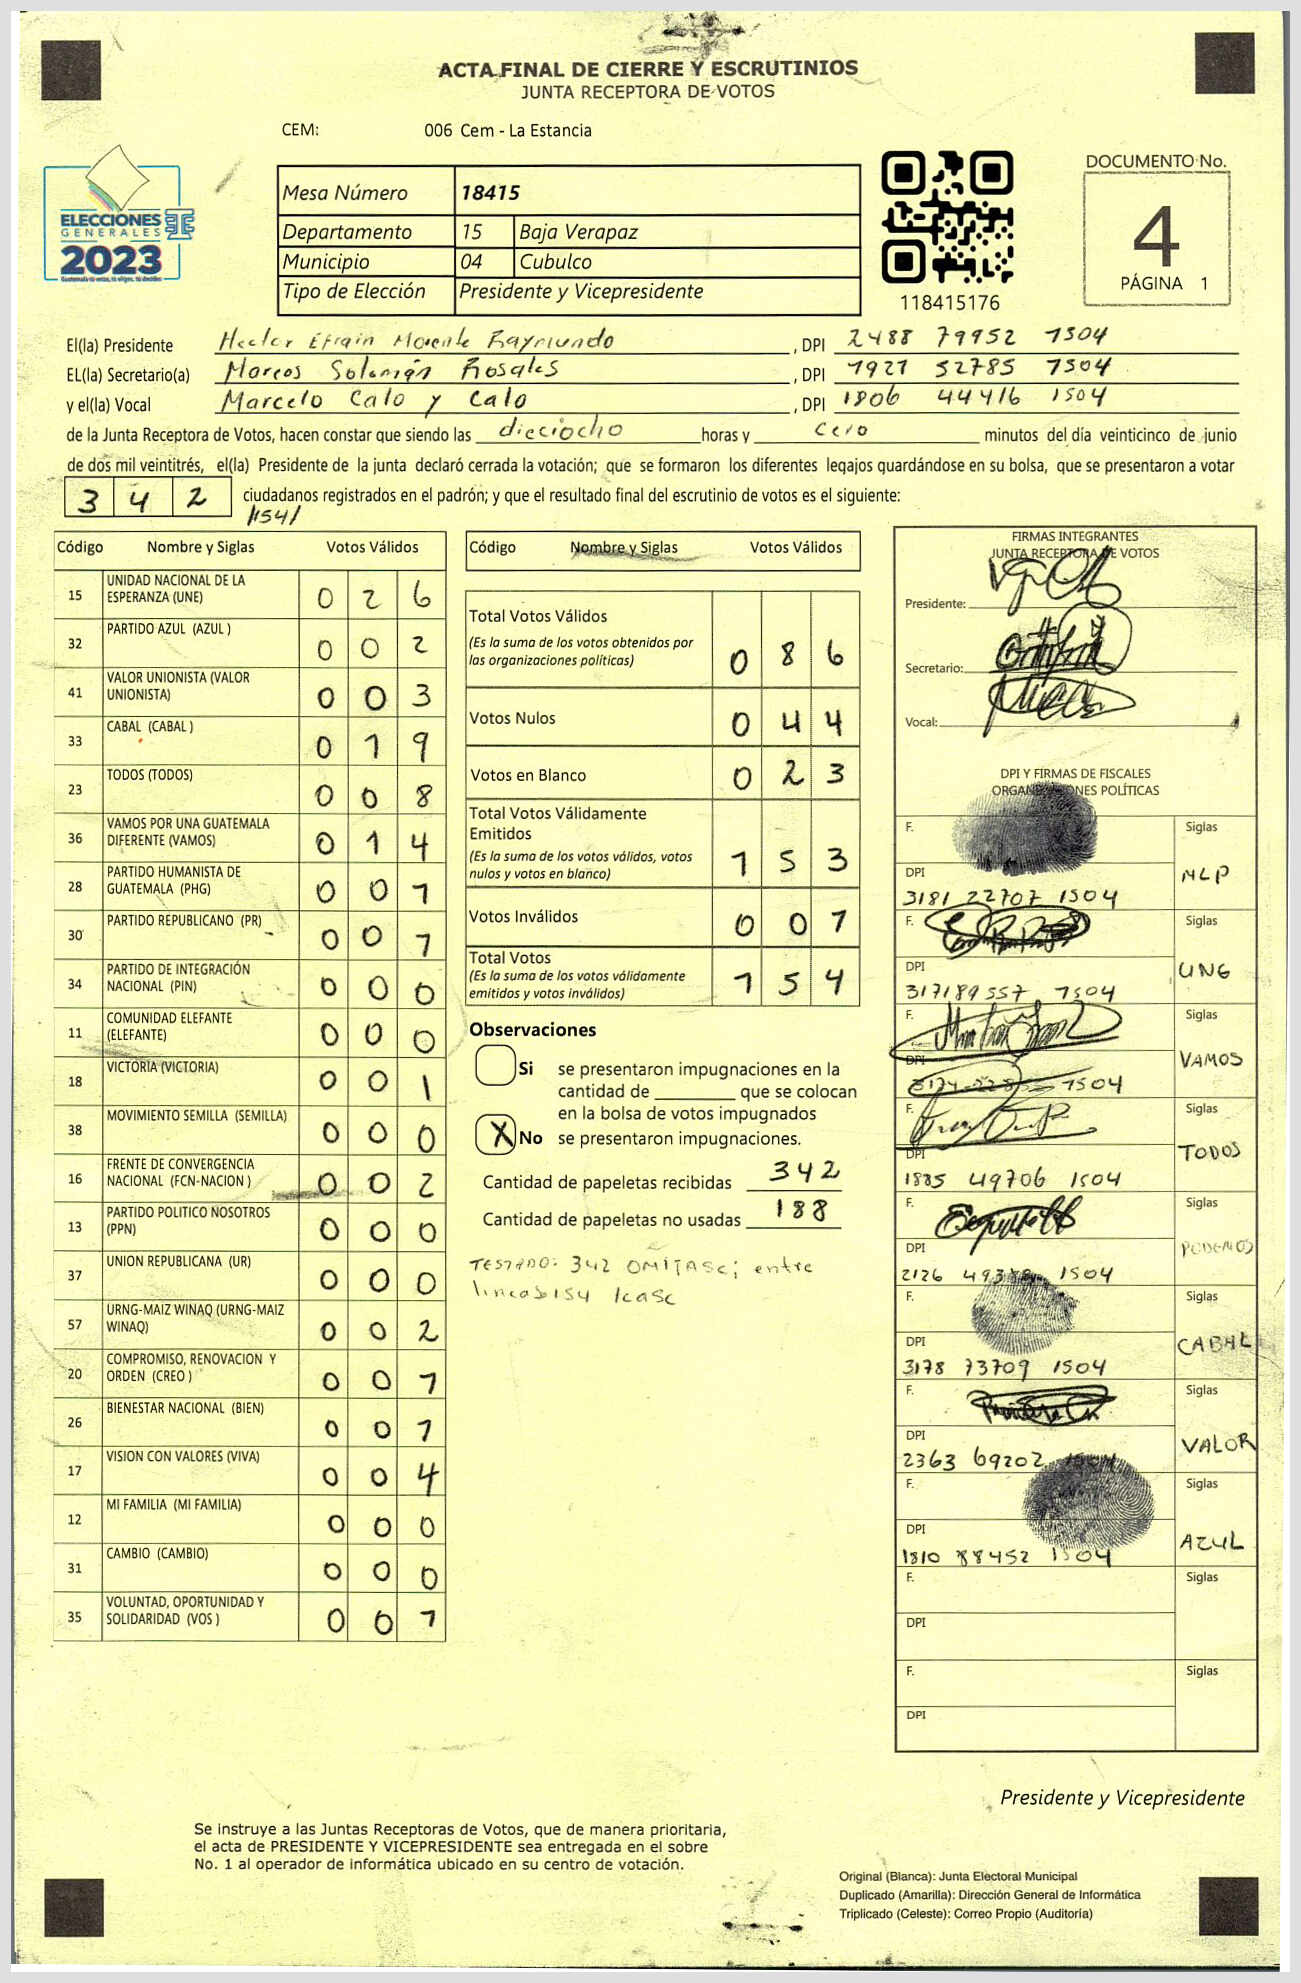 ACTA FINAL DE CIERRE Y ESCRUTINIOS
JUNTA RECEPTORA DE VOTOS
CEM: 006 Cem - La Estancia
ELECCIONES
GENERALES
2023
Mesa Número 18415
Departamento 15 Baja Verapaz
Municipio 04 Cubulco
Tipo de Elección Presidente y Vicepresidente
118415176
DOCUMENTO No.
4
PÁGINA 1
El(la) Presidente Hector Efrain Morente Raymundo, DPI 2488 79952 1504
EL(la) Secretario(a) Marcos Solomán Rosales, DPI 1927 52785 1504
y el(la) Vocal Marcelo Calo y Calo, DPI 1806 44416 1504
de la Junta Receptora de Votos, hacen constar que siendo las dieciocho horas y cero minutos del día veinticinco de junio
de dos mil veintitrés, el(la) Presidente de la junta declaró cerrada la votación; que se formaron los diferentes legajos guardándose en su bolsa, que se presentaron a votar
3 4 2 ciudadanos registrados en el padrón; y que el resultado final del escrutinio de votos es el siguiente:
/154/
Código Nombre y Siglas Votos Válidos
15 UNIDAD NACIONAL DE LA ESPERANZA (UNE) 0 2 6
32 PARTIDO AZUL (AZUL ) 0 0 2
41 VALOR UNIONISTA (VALOR UNIONISTA) 0 0 3
33 CABAL (CABAL ) 0 1 9
23 TODOS (TODOS) 0 0 8
36 VAMOS POR UNA GUATEMALA DIFERENTE (VAMOS) 0 1 4
28 PARTIDO HUMANISTA DE GUATEMALA (PHG) 0 0 1
30 PARTIDO REPUBLICANO (PR) 0 0 1
34 PARTIDO DE INTEGRACIÓN NACIONAL (PIN) 0 0 0
11 COMUNIDAD ELEFANTE (ELEFANTE) 0 0 0
18 VICTORIA (VICTORIA) 0 0 1
38 MOVIMIENTO SEMILLA (SEMILLA) 0 0 0
16 FRENTE DE CONVERGENCIA NACIONAL (FCN-NACION ) 0 0 2
13 PARTIDO POLITICO NOSOTROS (PPN) 0 0 0
37 UNION REPUBLICANA (UR) 0 0 0
57 URNG-MAIZ WINAQ (URNG-MAIZ WINAQ) 0 0 2
20 COMPROMISO, RENOVACION Y ORDEN (CREO ) 0 0 1
26 BIENESTAR NACIONAL (BIEN) 0 0 1
17 VISION CON VALORES (VIVA) 0 0 4
12 MI FAMILIA (MI FAMILIA) 0 0 0
31 CAMBIO (CAMBIO) 0 0 0
35 VOLUNTAD, OPORTUNIDAD Y SOLIDARIDAD (VOS ) 0 0 1
Código Nombre y Siglas Votos Válidos
Total Votos Válidos
(Es la suma de los votos obtenidos por
las organizaciones políticas) 0 8 6
Votos Nulos 0 4 4
Votos en Blanco 0 2 3
Total Votos Válidamente
Emitidos
(Es la suma de los votos válidos, votos
nulos y votos en blanco) 1 5 3
Votos Inválidos 0 0 1
Total Votos
(Es la suma de los votos válidamente
emitidos y votos inválidos) 1 5 4
Observaciones
Si se presentaron impugnaciones en la
cantidad de ________ que se colocan
en la bolsa de votos impugnados
X No se presentaron impugnaciones.
Cantidad de papeletas recibidas 342
Cantidad de papeletas no usadas 188
TESTADO: 342 OMITASE; entre
lineas 154 lease
FIRMAS INTEGRANTES
JUNTA RECEPTORA DE VOTOS
Presidente:
Secretario:
Vocal:
DPI Y FIRMAS DE FISCALES
ORGANIZACIONES POLÍTICAS
F. Siglas
DPI 3181 22707 1504 MLP
F. Siglas
DPI 317189557 1504 UNE
F. Siglas
DPI 1504 VAMOS
F. Siglas
DPI 1885 49706 1504 TODOS
F. Siglas
DPI 2126 1504 PODEMOS
F. Siglas
DPI 3178 73709 1504 CABAL
F. Siglas
DPI 2363 69202 1504 VALOR
F. Siglas
DPI 1810 88452 1504 AZUL
F. Siglas
DPI
F. Siglas
DPI
Presidente y Vicepresidente
Se instruye a las Juntas Receptoras de Votos, que de manera prioritaria,
el acta de PRESIDENTE Y VICEPRESIDENTE sea entregada en el sobre
No. 1 al operador de informática ubicado en su centro de votación.
Original (Blanca): Junta Electoral Municipal
Duplicado (Amarilla): Dirección General de Informática
Triplicado (Celeste): Correo Propio (Auditoría)